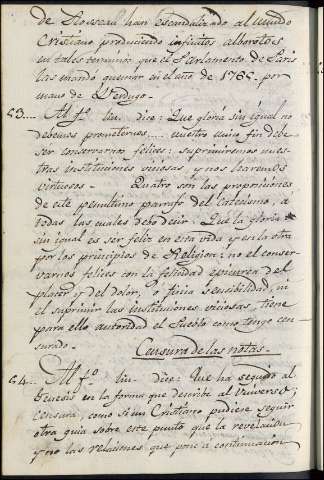 de Rousseau han escandalizado al mundo
Cristiano produciendo infinitos alborotos
en tales terminos que el Parlamento de Paris
las mandó quemar en el año de 1765. por
mano de Verdugo.
53... Al f.º lin. dice: Que gloria sin igual no
debemos prometernos.... nuestro unico fin debe
ser conservarnos felices: suprimiremos nues-
tras instituciones viciosas y nos haremos
virtuosos. Quatro son las proposiciones
de este penultimo parrafo del Catecismo, a
todas las cuales debo decir: Que la gloria
sin igual es ser feliz en esta vida y en la otra
por los principios de Religion: no el conser-
varnos felices con la felicidad epicurea del
placer y del dolor, o fisica sensibilidad, ni
el suprimir las instituciones viciosas, tiene
para ello autoridad el Pueblo como tengo cen-
surado.
Censura de las notas.
54... Al f.º lin. dice: Que ha seguido al
Genesis en la forma que describe al Universo;
censura, como si un Cristiano pudiese seguir
otra guia sobre este punto que la revelacion
y no las relaciones que pone a continuacion